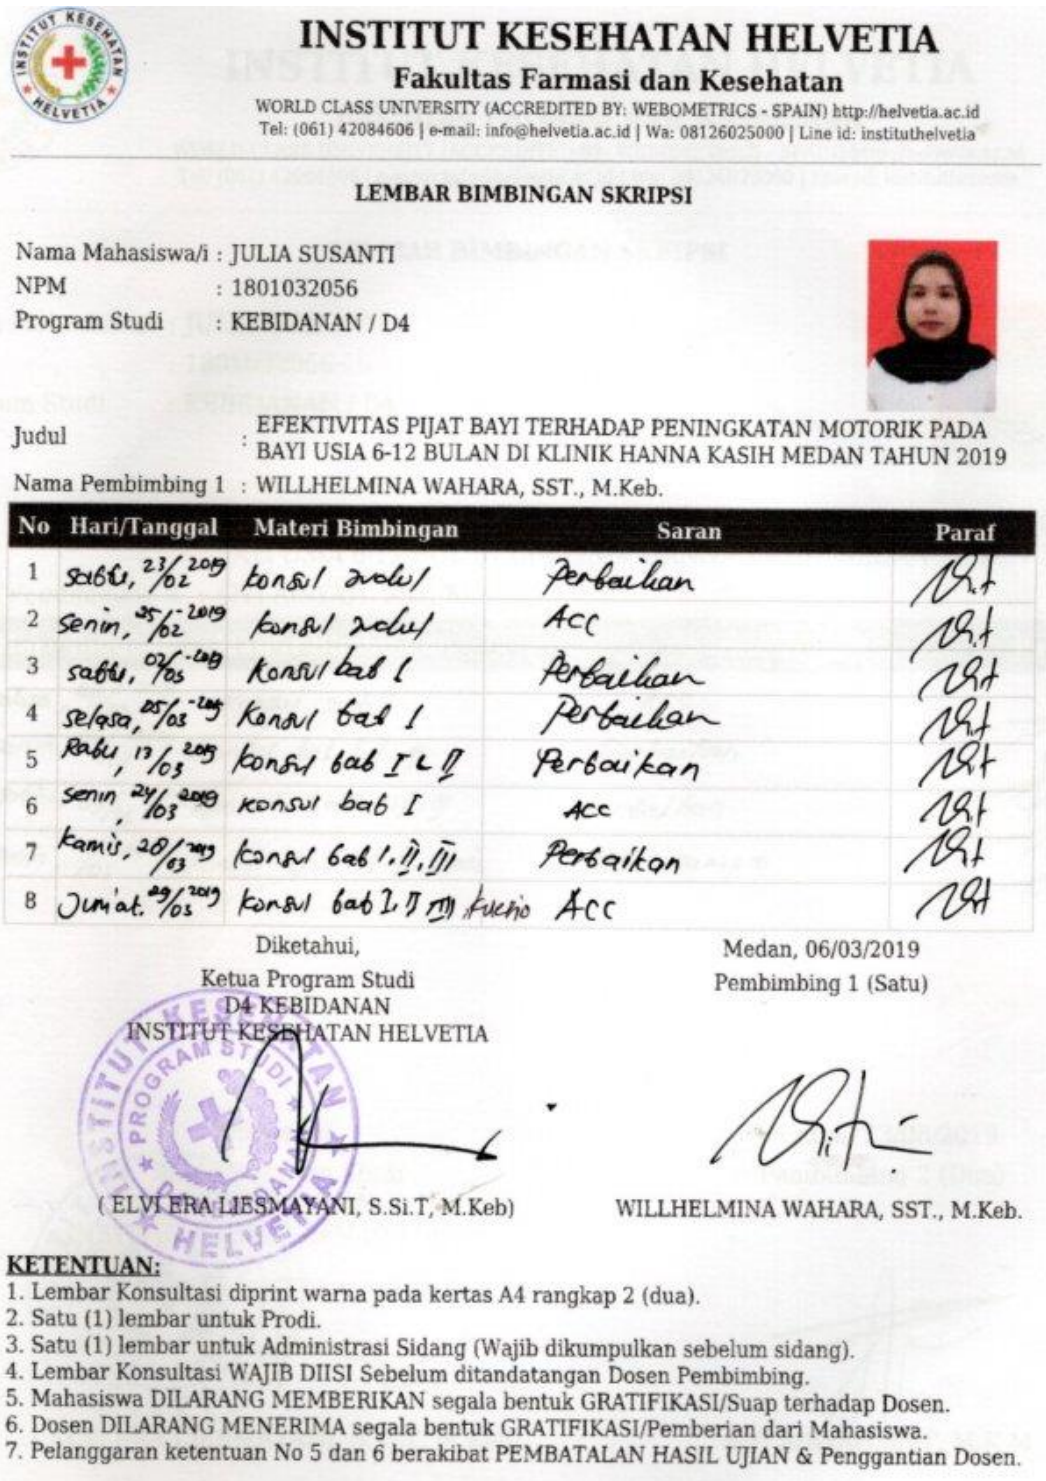 INSTITUT KESEHATAN HELVETIA
INSTITUT KESEHATAN HELVETIA
Fakultas Farmasi dan Kesehatan
WORLD CLASS UNIVERSITY (ACCREDITED BY: WEBOMETRICS - SPAIN) http://helvetia.ac.id
Tel: (061) 42084606 | e-mail: info@helvetia.ac.id | Wa: 08126025000 | Line id: instituthelvetia
LEMBAR BIMBINGAN SKRIPSI
Nama Mahasiswa/i : JULIA SUSANTI
NPM : 1801032056
Program Studi : KEBIDANAN / D4
Judul : EFEKTIVITAS PIJAT BAYI TERHADAP PENINGKATAN MOTORIK PADA
BAYI USIA 6-12 BULAN DI KLINIK HANNA KASIH MEDAN TAHUN 2019
Nama Pembimbing 1 : WILLHELMINA WAHARA, SST., M.Keb.
No Hari/Tanggal Materi Bimbingan Saran Paraf
1 Sabtu, 23/02 2019 konsul Judul Perbaikan
2 Senin, 25/02-2019 konsul Judul Acc
3 Sabtu, 02/03-2019 Konsul bab I Perbaikan
4 Selasa, 05/03-2019 Konsul bab I Perbaikan
5 Rabu, 13/03 2019 konsul bab I & II Perbaikan
6 Senin, 24/03 2019 konsul bab I Acc
7 Kamis, 28/03 2019 konsul bab I, II, III Perbaikan
8 Jum'at. 29/03 2019 konsul bab I. II III Acc
Diketahui,
Ketua Program Studi
D4 KEBIDANAN
INSTITUT KESEHATAN HELVETIA
Medan, 06/03/2019
Pembimbing 1 (Satu)
INSTITUT KESEHATAN
PROGRAM STUDI
HELVETIA
( ELVI ERA LIESMAYANI, S.Si.T, M.Keb)
WILLHELMINA WAHARA, SST., M.Keb.
KETENTUAN:
1. Lembar Konsultasi diprint warna pada kertas A4 rangkap 2 (dua).
2. Satu (1) lembar untuk Prodi.
3. Satu (1) lembar untuk Administrasi Sidang (Wajib dikumpulkan sebelum sidang).
4. Lembar Konsultasi WAJIB DIISI Sebelum ditandatangan Dosen Pembimbing.
5. Mahasiswa DILARANG MEMBERIKAN segala bentuk GRATIFIKASI/Suap terhadap Dosen.
6. Dosen DILARANG MENERIMA segala bentuk GRATIFIKASI/Pemberian dari Mahasiswa.
7. Pelanggaran ketentuan No 5 dan 6 berakibat PEMBATALAN HASIL UJIAN & Penggantian Dosen.